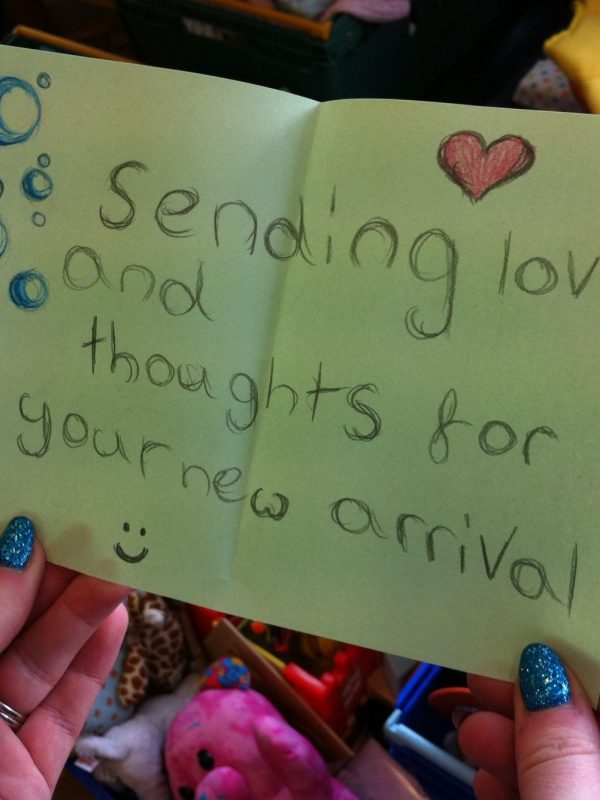 Sending lov
and
thoughts for
your new arrival